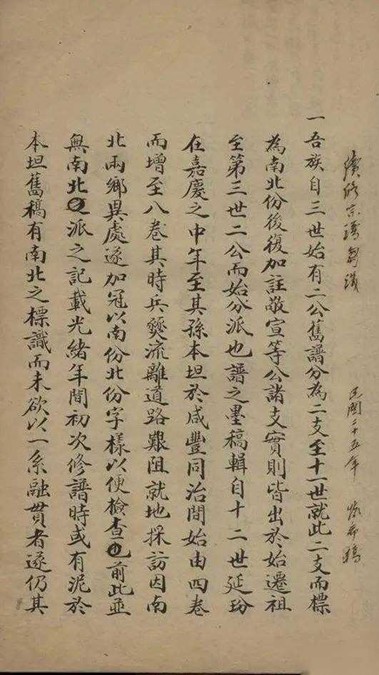 續修宗譜芻議 民國二十五年 稿
一吾族自三世始有二公舊譜分為二支至十一世就此二支而標
為南北份後復加註敬宣等公諸支實則皆出於始遷祖
至第三世二公而始分派也譜之墨稿輯自十二世延玢
在嘉慶之中年至其孫本坦於咸豐同治間始由四卷
而增至八卷其時兵燹流離道路艱阻就地採訪因南
北兩鄉異處遂加冠以南份北份字樣以便檢查前此並
無南北派之記載光緒年間初次修譜時或有泥於
本坦舊稿有南北之標識而未欲以一系融貫者遂仍其